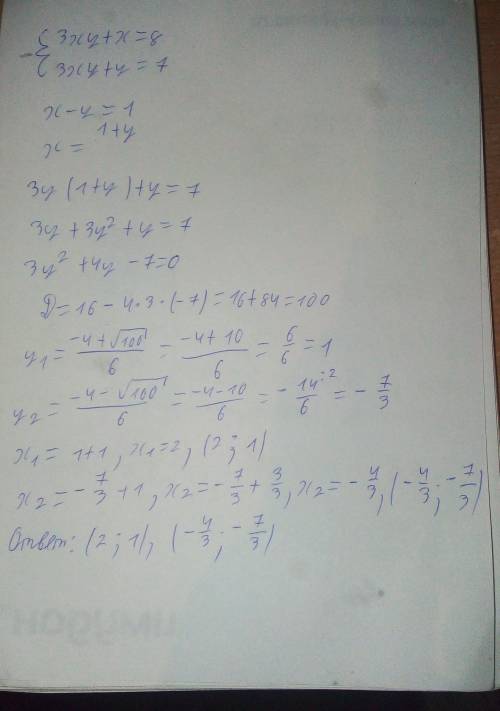 { 3xy+x=8
3xy+y=7
x-y=1
x= 1+y
3y(1+y)+y=7
3y+3y²+y=7
3y²+4y-7=0
D=16-4·3·(-7)=16+84=100
y₁= (-4+√100)/6 = (-4+10)/6 = 6/6 =1
y₂= (-4-√100)/6 = (-4-10)/6 = -14:2/6 = -7/3
x₁=1+1, x₁=2, (2;1)
x₂=-7/3+1, x₂=-7/3+3/3, x₂=-4/3, (-4/3;-7/3)
Ответ: (2;1), (-4/3;-7/3)